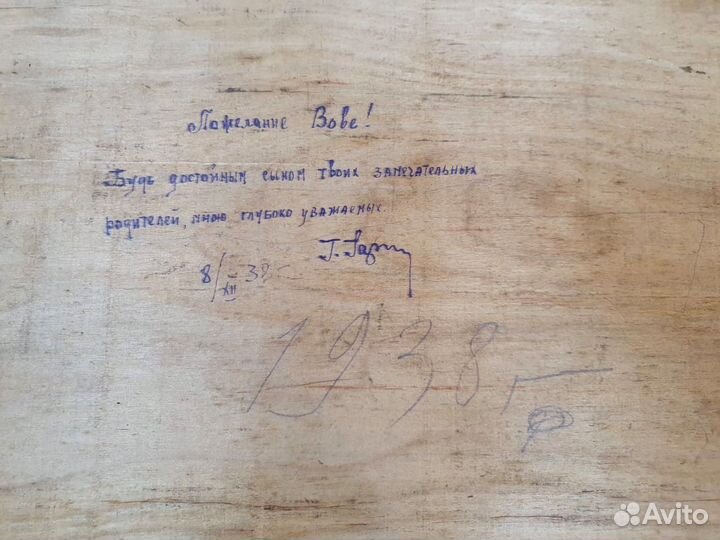 Пожелание Вове!
Будь достойным сыном твоих замечательных
родителей, мною глубоко уважаемых.
Г.
8/XII 38
1938 г
Avito